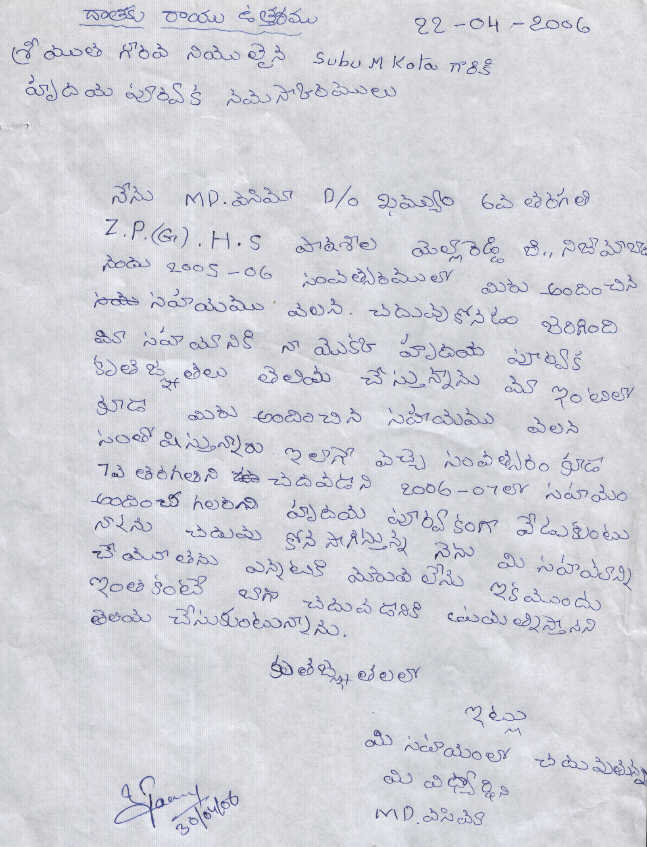 దాతకు రాయు ఉత్తరము
22-04-2006
శ్రీయుత గౌరవ నియులైన Subu M Kota గారికి
హృదయ పూర్వక నమస్కారములు
నేను MD. D/o ఖయ్యుం 6వ తరగతి
Z.P.(G).H.S పాఠశాల యెల్లారెడ్డి జి., నిజామాబాద
నందు 2005-06 సంవత్సరములో మిరు అందించిన
సహాయము వలన. చదువుకోనటం జరిగింది
మీ సహాయానికి నా యొకక హృదయ పూర్వక
కృతజ్ఞతలు తెలియ చేస్తున్నాను మా ఇంటిలో
కూడా మిరు అందించిన సహాయము వలన
సంతోషిస్తున్నారు ఇలాగే వచ్చె సంవత్సరం కూడా
7వ తరగతిని చదవడాని 2006-07లో సహాయం
అందించ గలరని హృదయ పూర్వకంగా వేడుకుంటు
నానను చదువు కోన సాగిస్తున్న నెను మి సహాయాన్ని
చేయూతను ఎన్నటికి మరువ లేను ఇకముందు
ఇంతకంటే బాగా చదువడానికి ప్రయత్నిస్తానని
తెలియ చేసుకుంటున్నాను.
కృతజ్ఞతలలో
ఇట్లు
మి సహాయంలో చదువుతున్న
మి విద్యార్థిని
MD.
30/04/06